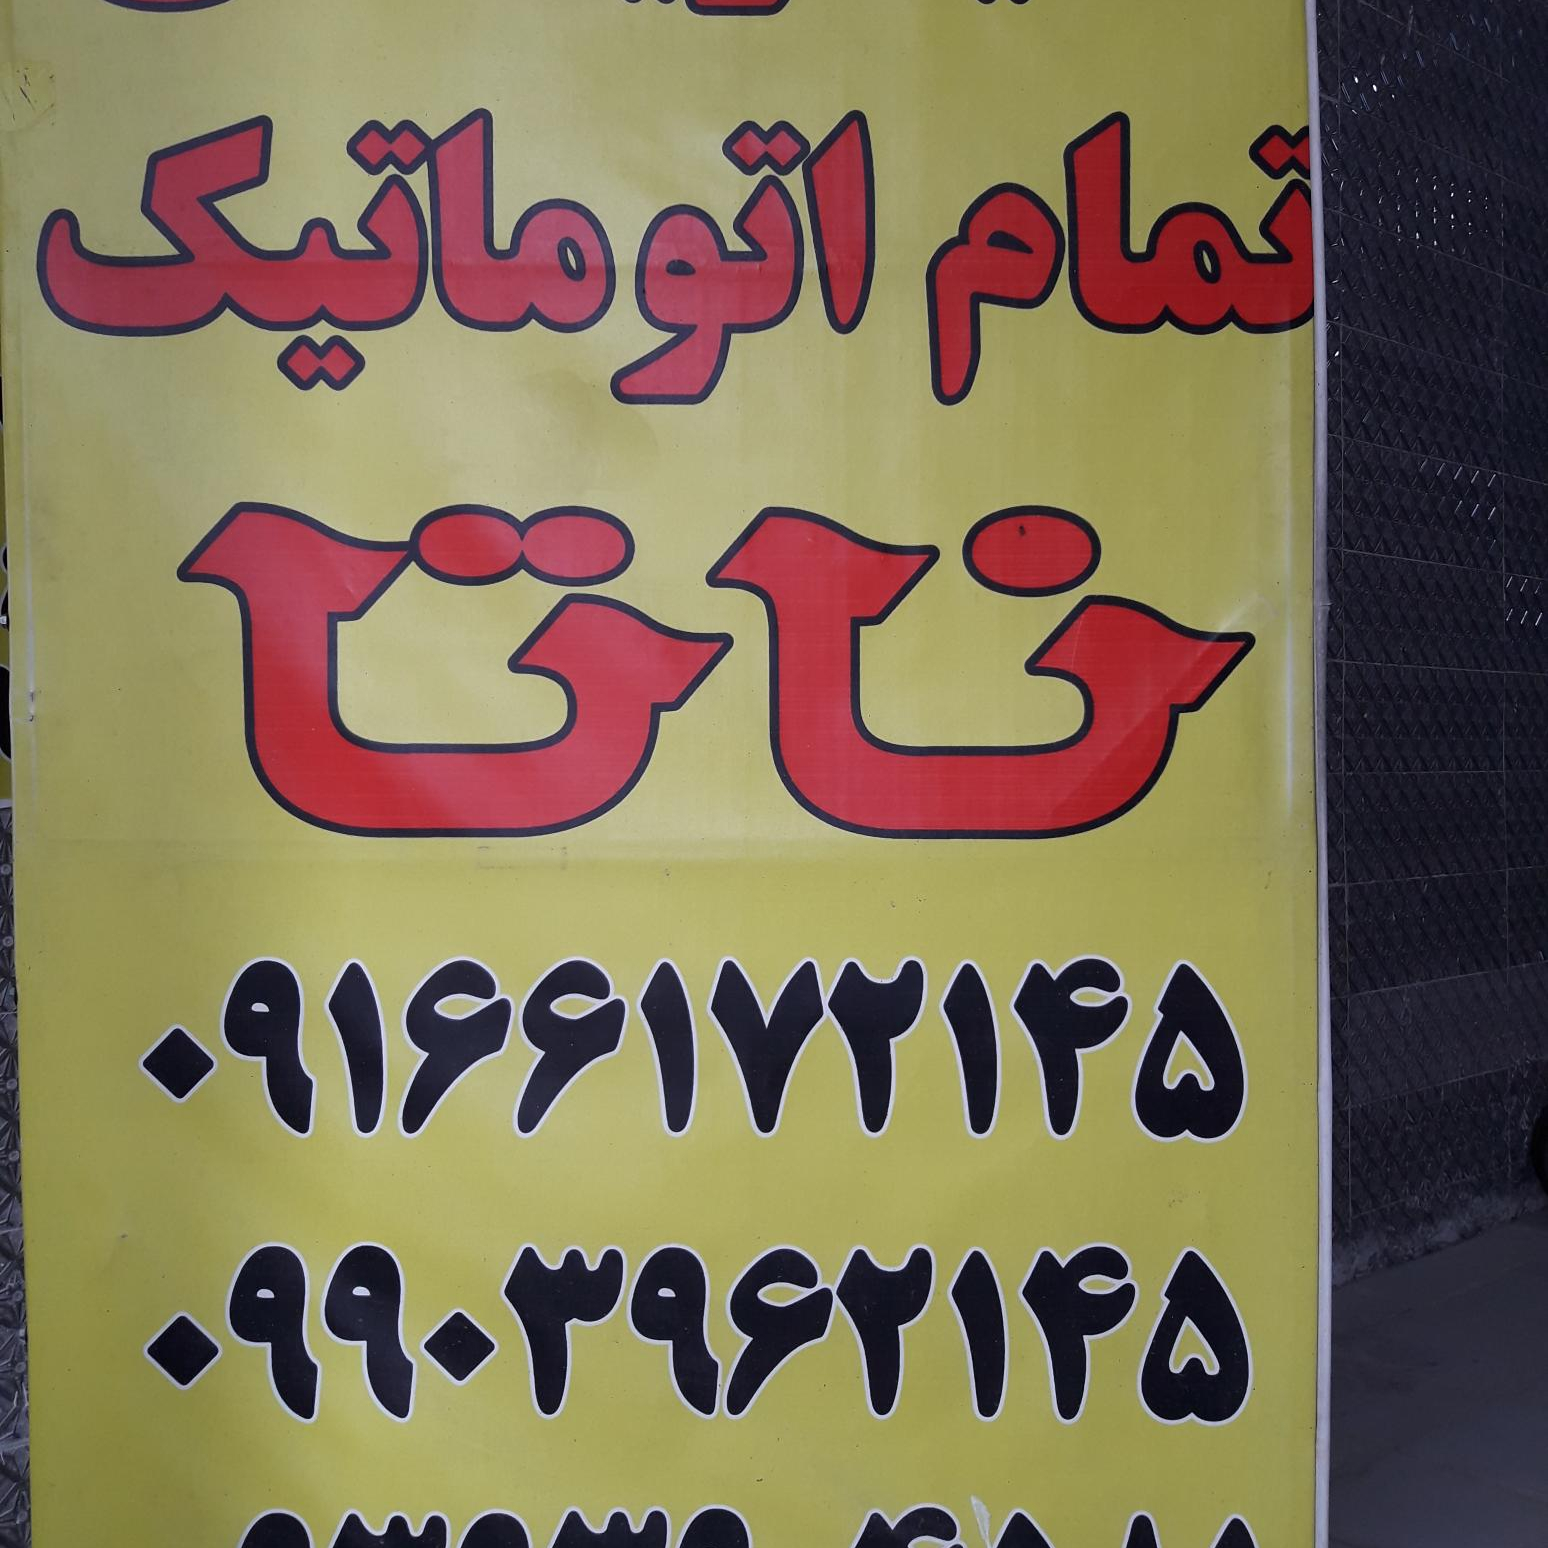 تمام اتوماتیک
ناتا
۰۹۱۶۶۱۷۲۱۴۵
۰۹۹۰۳۹۶۲۱۴۵